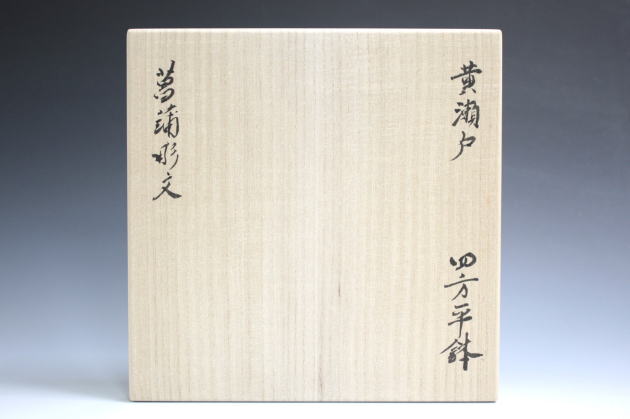 黄瀬戸
四方平鉢
菖蒲彫文